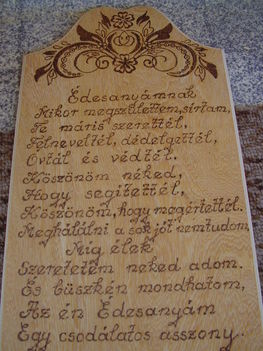 Édesanyámnak
Mikor megszülettem, sírtam,
Te máris szerettél,
Felneveltél, dédelgettél,
Óvtál és védtél.
Köszönöm néked,
Hogy segítettél,
Köszönöm, hogy megértettél.
Meghálálni a sok jót nem tudom,
Míg élek
Szeretetem neked adom.
És büszkén mondhatom,
Az én Édesanyám
Egy csodálatos asszony..